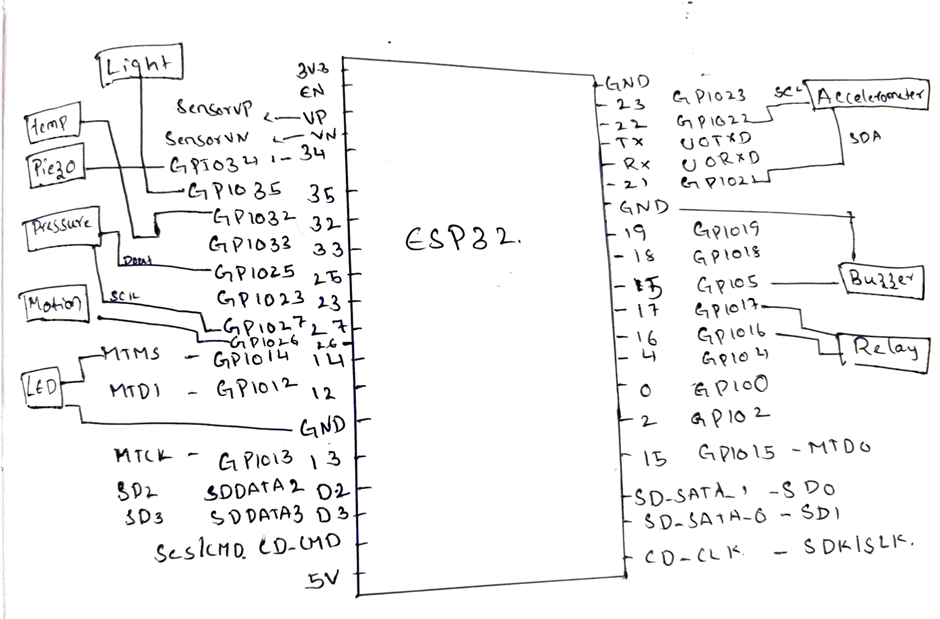 Light
temp
Piezo
Pressure
Dout
SCK
Motion
LED
3V3
EN
SensorVP VP
SensorVN VN
GPIO34 34
GPIO35 35
GPIO32 32
GPIO33 33
GPIO25 25
GPIO23 23
GPIO27 27
GPIO26 26
MTMS - GPIO14 14
MTDI - GPIO12 12
GND
MTCK - GPIO13 13
SD2 SDDATA2 D2
SD3 SDDATA3 D3
SCS/CMD. CD-CMD
5V
ESP32.
GND
23 GPIO23
22 GPIO22
TX UOTXD
Rx UORXD
21 GPIO21
GND
19 GPIO19
18 GPIO18
GPIO5
17 GPIO17
16 GPIO16
4 GPIO4
0 GPIO0
2 GPIO2
15 GPIO15 - MTDO
SD-SATA-1 - SDO
SD-SATA-0 - SDI
CD-CLK - SDK/SLK.
SCL
Accelerometer
SDA
Buzzer
Relay